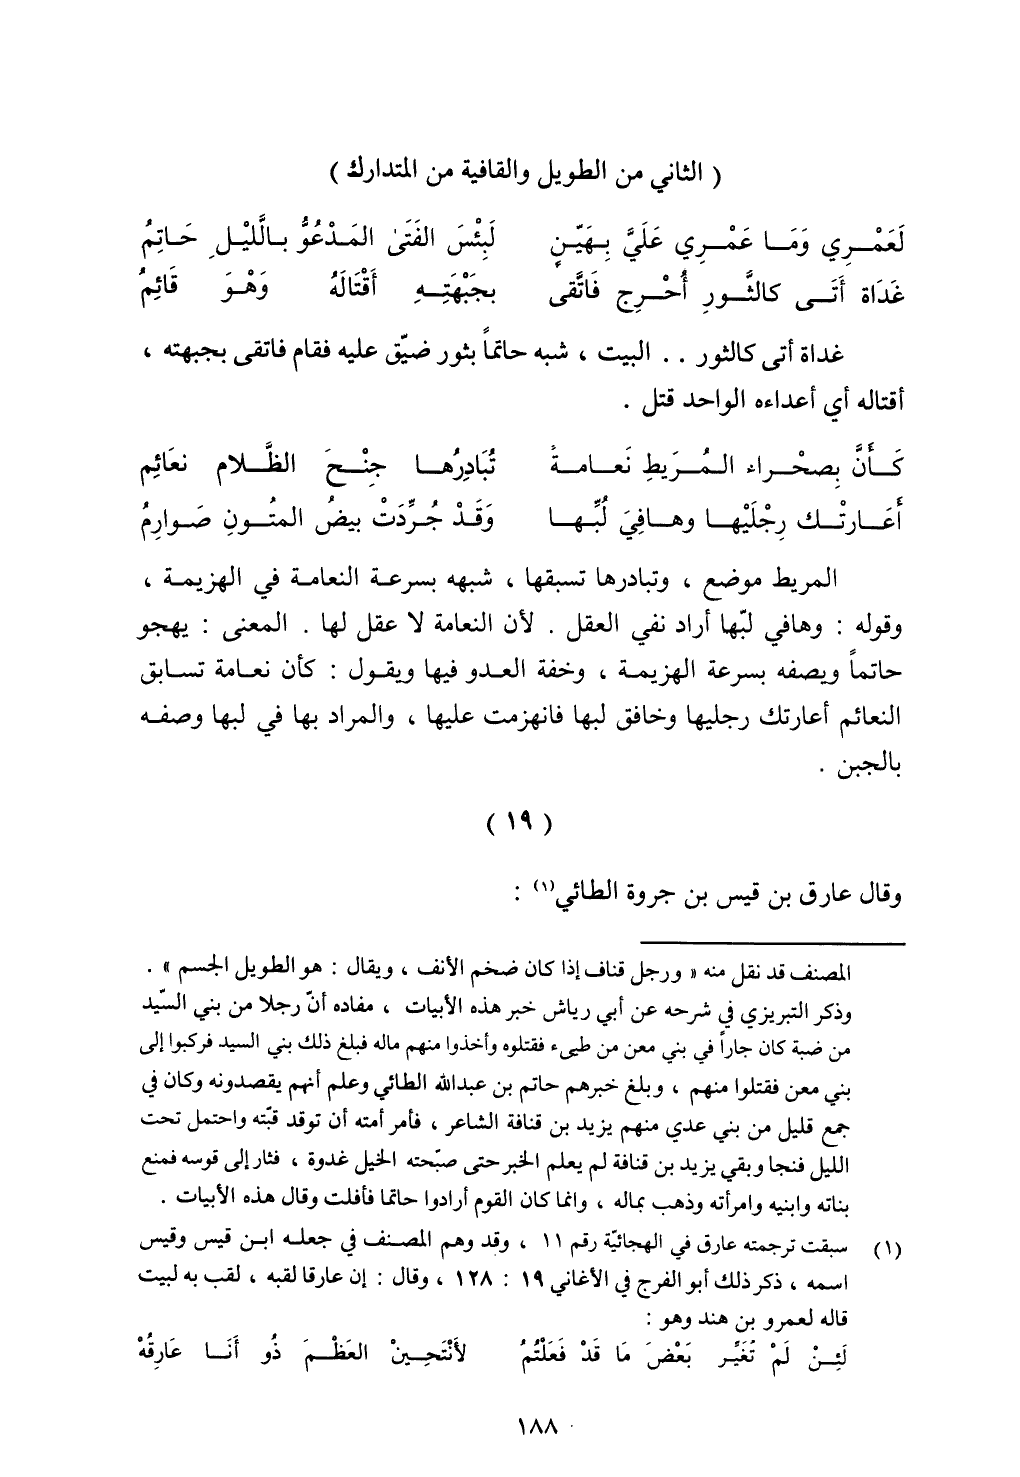 ( الثاني من الطويل والقافية من المتدارك )
لَعَمْـــرِي وَمَـــا عَمْـــرِي عَلَيَّ بِـهَيّـنٍ لَبِئْسَ الفَتَىٰ المَـدْعُوُّ بـالَّليْـلِ حَـاتِمُ
غَدَاة أَتَـــى كالثَّــورِ أُحْــرِج فَاتَّقى بجَبْهَتِـــهِ أَقْتَالَهُ وَهْــوَ قَائِمُ
غداة أتى كالثور . . البيت ، شبه حاتماً بثور ضيّق عليه فقام فاتقى بجبهته ،
أقتاله أي أعداءه الواحد قتل .
كَــأَنَّ بِصحْــراء الــمُـرَيَطِ نَعـامـةً تُبَادِرُهــا جِنْــحَ الظَّــلام نعَائِم
أَعَــارتْــك رِجْلَيْهــا وهــافِيَ لُبِّــهــا وَقَــدْ جُــرِّدَتْ بيضُ المتُــونِ صَـوارِمُ
المريط موضع ، وتبادرها تسبقها ، شبهه بسرعة النعامة في الهزيمة ،
وقوله : وهافي لبّها أراد نفي العقل . لأن النعامة لا عقل لها . المعنى : يهجو
حاتماً ويصفه بسرعة الهزيمة ، وخفة العدو فيها ويقول : كأن نعامة تسابق
النعائم أعارتك رجليها وخافق لبها فانهزمت عليها ، والمراد بها في لبها وصفه
بالجبن .
( ١٩ )
وقال عارق بن قيس بن جروة الطائي(١) :
المصنف قد نقل منه « ورجل قناف إذا كان ضخم الأنف ، ويقال : هو الطويل الجسم » .
وذكر التبريزي في شرحه عن أبي رياش خبر هذه الأبيات ، مفاده أنّ رجلا من بني السّيد
من ضبة كان جاراً في بني معن من طيىء فقتلوه وأخذوا منهم ماله فبلغ ذلك بني السيد فركبوا إلى
بني معن فقتلوا منهم ، وبلغ خبرهم حاتم بن عبدالله الطائي وعلم أنهم يقصدونه وكان في
جمع قليل من بني عدي منهم يزيد بن قنافة الشاعر ، فأمر أمته أن توقد قبّته واحتمل تحت
الليل فنجا وبقي يزيد بن قنافة لم يعلم الخبر حتى صبّحته الخيل غدوة ، فثار إلى قوسه فمنع
بناته وابنيه وامرأته وذهب بماله ، وانما كان القوم أرادوا حاتما فأفلت وقال هذه الأبيات .
(١) سبقت ترجمته عارق في الهجائيّة رقم ١١ ، وقد وهم المصنف في جعله ابن قيس وقيس
اسمه ، ذكر ذلك أبو الفرج في الأغاني ١٩ : ١٢٨ ، وقال : إن عارقا لقبه ، لقب به لبيت
قاله لعمرو بن هند وهو :
لَئِــنْ لَمْ تُغَيِّر بَعْضَ مَا قَدْ فَعَلْتُمُ لأَنْتَحِيــنْ العَظْــمَ ذُو أَنَــا عَارِقُهْ
١٨٨